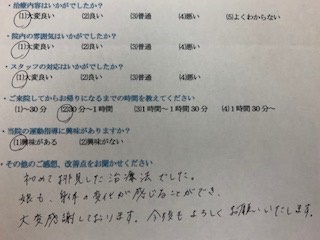 ・治療内容はいかがでしたか？
(1)大変良い (2)良い (3)普通 (4)悪い (5)よくわからない
・院内の雰囲気はいかがでしたか？
(1)大変良い (2)良い (3)普通 (4)悪い
・スタッフの対応はいかがでしたか？
(1)大変良い (2)良い (3)普通 (4)悪い
・ご来院してからお帰りになるまでの時間を教えてください
(1)～30分 (2)30分～1時間 (3)1時間～1時間30分 (4)1時間30分～
・当院の運動指導に興味がありますか？
(1)興味がある (2)興味がない
・その他のご感想、改善点をお聞かせください
初めて拝見した治療法でした。
娘も、身体の変化が感じることができ、
大変感謝しております。今後もよろしくお願いいたします。